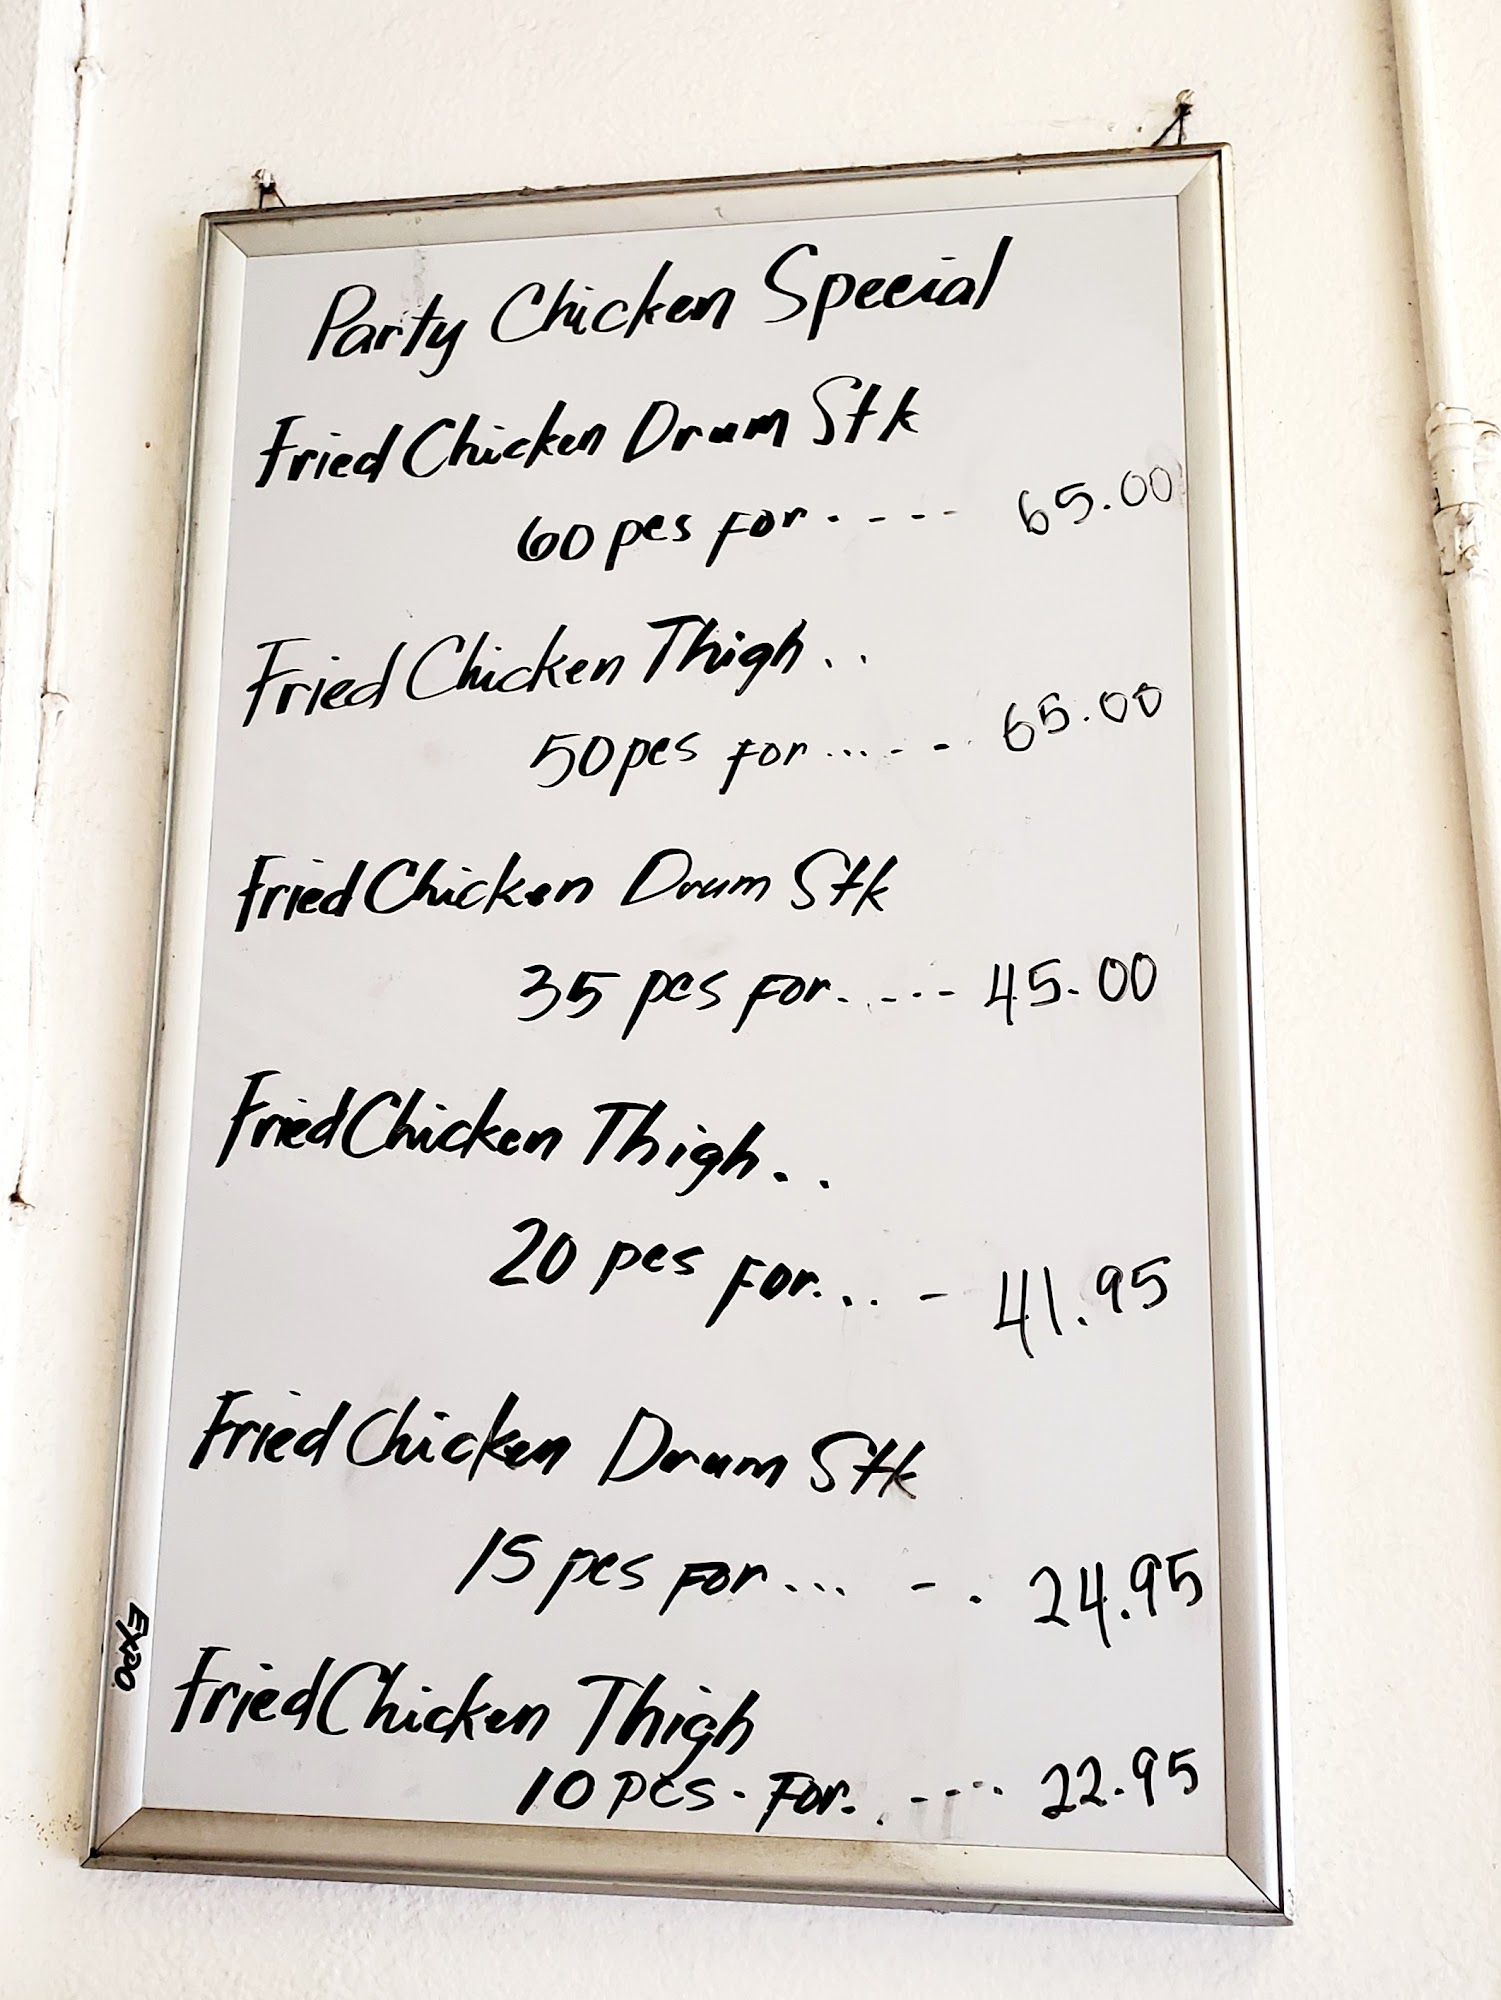 Party Chicken Special
Fried Chicken Drum Stk
60 pcs for. - - - - 65.00
Fried Chicken Thigh..
50 pcs for...-- - 65.00
Fried Chicken Drum Stk
35 pcs for. . - - - 45.00
Fried Chicken Thigh..
20 pcs for... - 41.95
Fried Chicken Drum Stk
15 pcs for... - . 24.95
Fried Chicken Thigh
10 pcs. for. . - - - . 22.95
EXPO